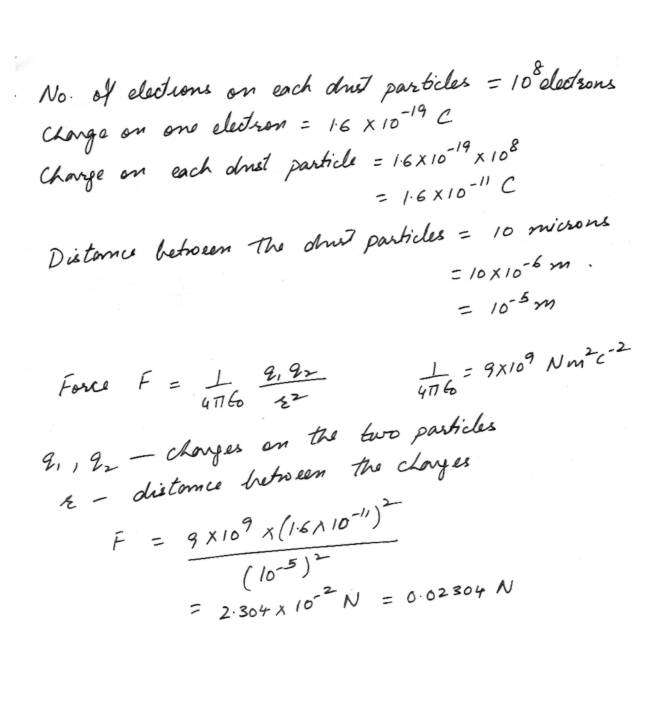 No. of electrons on each dust particles = 10⁸ electrons
Charge on one electron = 1.6 × 10⁻¹⁹ C
Charge on each dust particle = 1.6 × 10⁻¹⁹ × 10⁸
= 1.6 × 10⁻¹¹ C
Distance between the dust particles = 10 microns
= 10 × 10⁻⁶ m .
= 10⁻⁵ m
Force F = 1/4πϵ₀ q₁q₂/r² 1/4πϵ₀ = 9×10⁹ Nm²C⁻²
q₁, q₂ — charges on the two particles
r – distance between the charges
F = 9 × 10⁹ × (1.6 × 10⁻¹¹)² / (10⁻⁵)²
= 2.304 × 10⁻² N = 0.02304 N